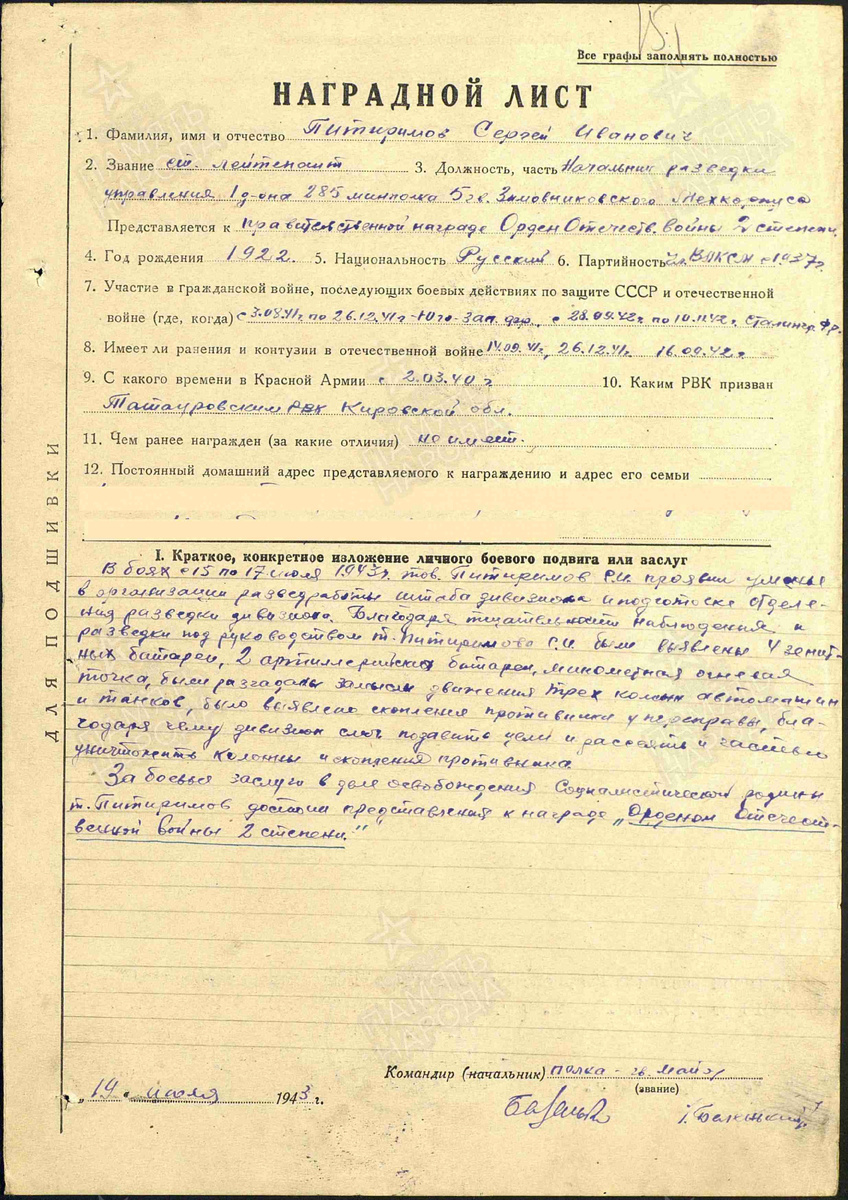 Все графы заполнять полностью
НАГРАДНОЙ ЛИСТ
1. Фамилия, имя и отчество Питиримов Сергей Иванович
2. Звание ст. лейтенант 3. Должность, часть Начальник разведки
управления 1 д-она 285 минполка 5 гв. Зимовниковского Мехкорпуса
Представляется к правительственной награде Орден Отечеств. Войны 2 степени.
4. Год рождения 1922. 5. Национальность Русский 6. Партийность чл. ВЛКСМ с 1937 г.
7. Участие в гражданской войне, последующих боевых действиях по защите СССР и отечественной
войне (где, когда) с 3.08.41г. по 26.12.41г - Юго-Зап. фр., с 28.09.42г по 10.11.42г. Сталингр. фр.
8. Имеет ли ранения и контузии в отечественной войне 14.09.41г, 26.12.41г. 16.09.42г.
9. С какого времени в Красной Армии с 2.03.40 г 10. Каким РВК призван
Татауровским РВК Кировской обл.
11. Чем ранее награжден (за какие отличия) не имеет.
12. Постоянный домашний адрес представляемого к награждению и адрес его семьи
I. Краткое, конкретное изложение личного боевого подвига или заслуг
В боях с 15 по 17 июля 1943г. тов. Питиримов С.И. проявил уменье
в организации разведработы штаба дивизиона и подготовке отделе-
ния разведки дивизиона. Благодаря тщательности наблюдения и
разведки под руководством т. Питиримова С.И. были выявлены 4 зенит-
ных батареи, 2 артиллерийских батареи, минометная огневая
точка, были разгаданы замыслы движения трех колонн автомашин
и танков, было выявлено скопления противника у переправы, бла-
годаря чему дивизион смог подавить цели и рассеять и частью
уничтожить колонны и скопления противника.
За боевые заслуги в деле освобождения Социалистической родины
т. Питиримов достоин представления к награде "Орденом Отечест-
венной Войны 2 степени."
ДЛЯ ПОДШИВКИ
Командир (начальник) полка - гв. майор
(звание)
"19" июля 1943 г.